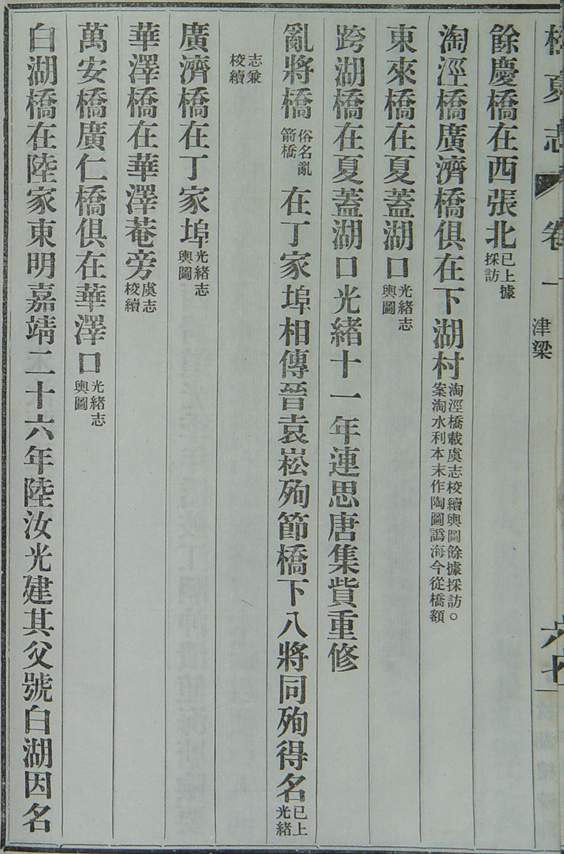 松夏志 卷一 津梁
餘慶橋在西張北已上據採訪
淘涇橋廣濟橋俱在下湖村淘涇橋載虞志校續輿圖餘據採訪○案淘水利本末作陶圖譌海今從橋額
東來橋在夏蓋湖口光緒志輿圖
跨湖橋在夏蓋湖口光緒十一年連思唐集貲重修
亂將橋俗名亂箭橋在丁家埠相傳晉袁崧殉節橋下八將同殉得名已上光緒
志兼校續
廣濟橋在丁家埠光緒志輿圖
華澤橋在華澤菴旁虞志校續
萬安橋廣仁橋俱在華澤口光緒志輿圖
白湖橋在陸家東明嘉靖二十六年陸汝光建其父號白湖因名